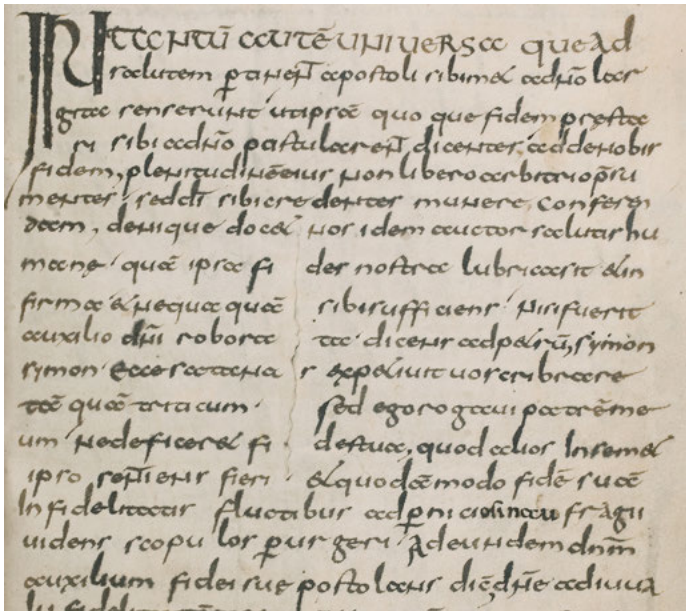 IN TANTŪ AUTĒ UNIVERSA que Ad
salutem ꝑtinen̄t apostoli sibimet adn̄o lar
gitae senserunt utipsā quo que fidem pręsta
ri sibi adn̄o postularen̄t dicentes, adde nobis
fidem, plenitudinēeius non libero arbitrio p̄su
mentes, sed dī sibi credentes munere conferen
dam, denique docet nos idem auctor salutis hu
manę quā ipsa fi des nostra lubrica sit et in
firma et nequaquā sibi sufficiens nisi fuerit
auxilio dn̄i robora ta dicens ad petrū, symon
symon Ecce satana s expetivit vos cribrare
tā quā triticum sed ego rogavi patrēme
um ne deficeret fi des tua, quod alius In semet
ipso sen̄tiens fieri et quod āmodo fidē suā
Infidelitatis fluctibus ad ꝑniciosi nau fragii
videns scopu los ꝑurgeri Ad eundem dnm̄
auxilium fidei sue postolans dn̄e adiuva